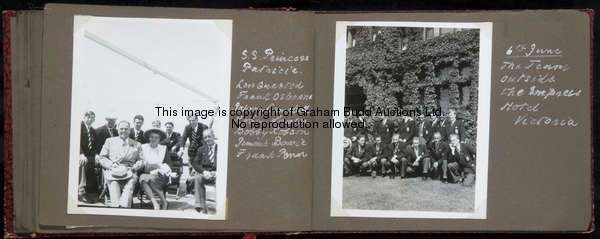 S.S. Princess
Patricia.
Len Quested
Frank Osborne
Bobby Robson
Jimmy Bowie
Frank
This image is copyright of Graham Budd Auctions Ltd.
No reproduction allowed.
6th June
The Team
outside
the Empress
Hotel
Victoria